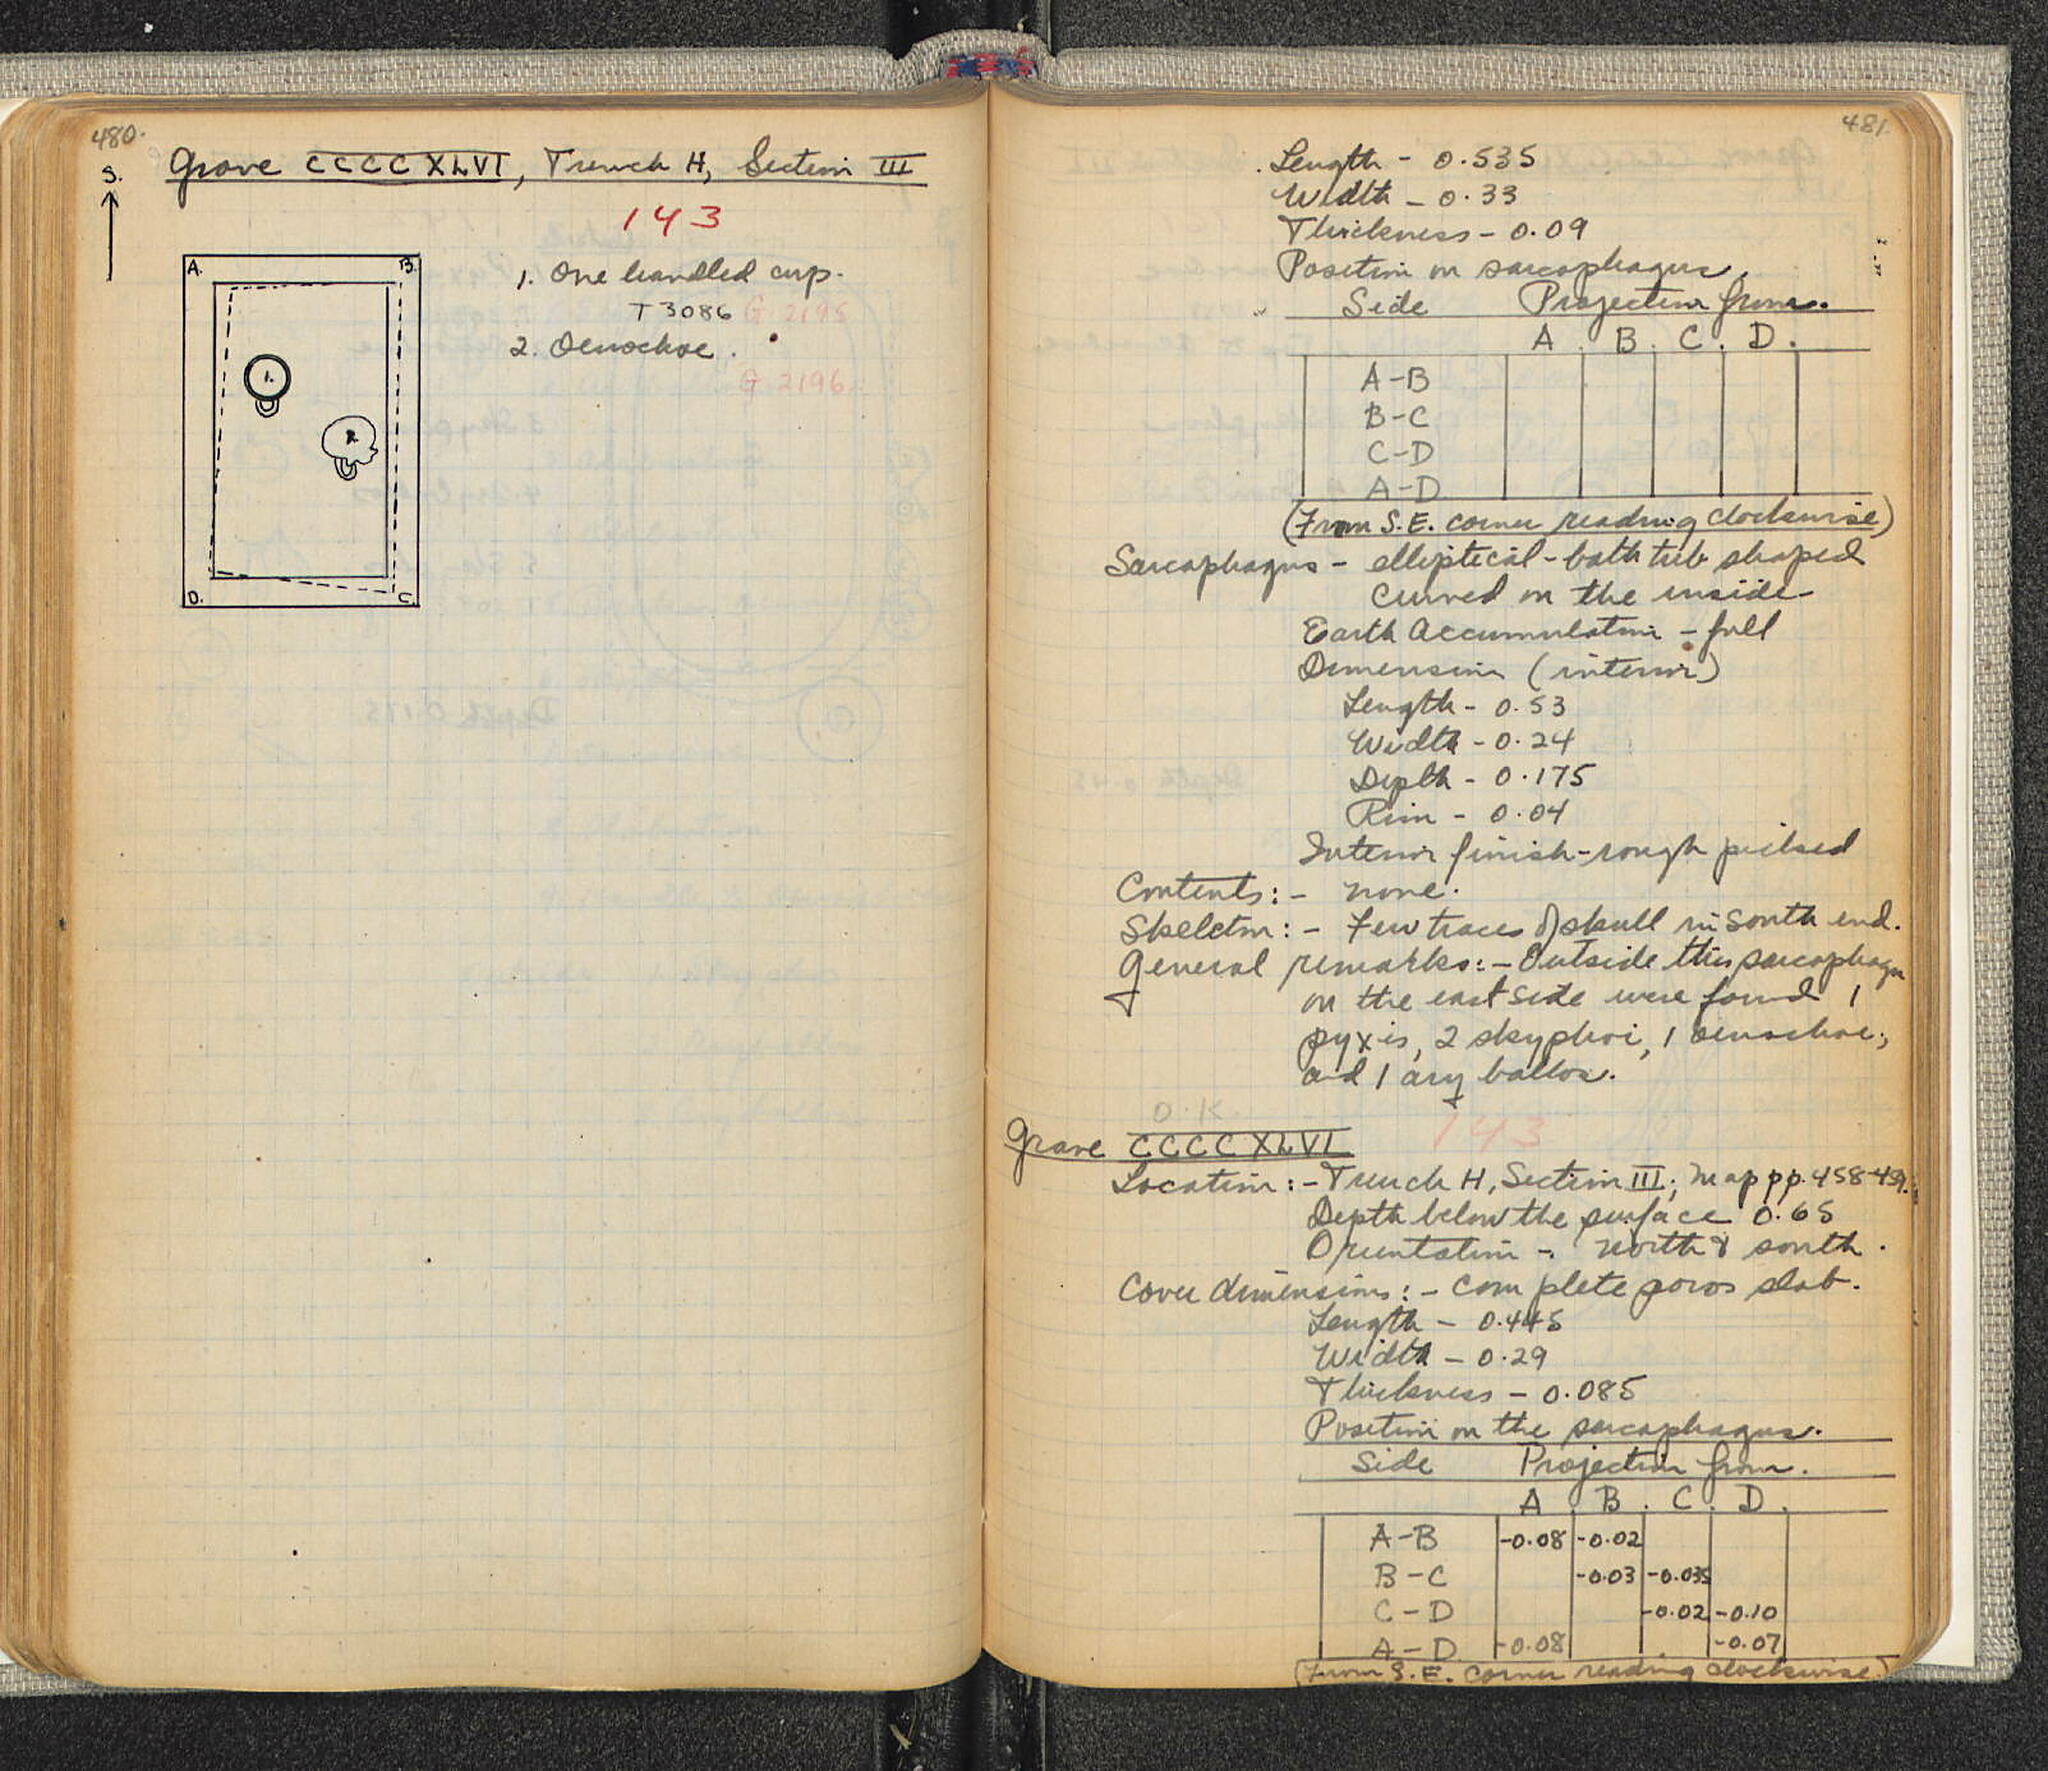 480.
S.
Grave CCCCXLVI, Trench H, Section III
143
A. B.
1. One handled cup.
T 3086 G 2195
2. Oenochoe.
G 2196
1.
2.
D. C.
481.
Length - 0.535
Width - 0.33
Thickness - 0.09
Position on sarcophagus.
Side Projection from.
A. B. C. D.
A-B
B-C
C-D
A-D
(From S.E. corner reading clockwise)
Sarcophagus - elliptical - bath tub shaped
curved on the inside
Earth Accumulation - full
Dimension (interior)
Length - 0.53
Width - 0.24
Depth - 0.175
Rim - 0.04
Interior finish - rough picked
Contents: - none.
Skeleton: - Few traces of skull in south end.
General remarks: - Outside this sarcophagus
on the east side were found 1
pyxis, 2 skyphoi, 1 oenochoe,
and 1 aryballos.
O.K.
Grave CCCCXLVI 143
Location: - Trench H, Section III; Map pp. 458-459.
Depth below the surface 0.65
Orientation - North & south.
Cover dimensions: - Complete poros slab.
Length - 0.445
Width - 0.29
Thickness - 0.085
Position on the sarcophagus.
Side Projection from.
A. B. C. D.
A-B -0.08 -0.02
B-C -0.03 -0.035
C-D -0.02 -0.10
A-D -0.08 -0.07
(From S.E. corner reading clockwise.)